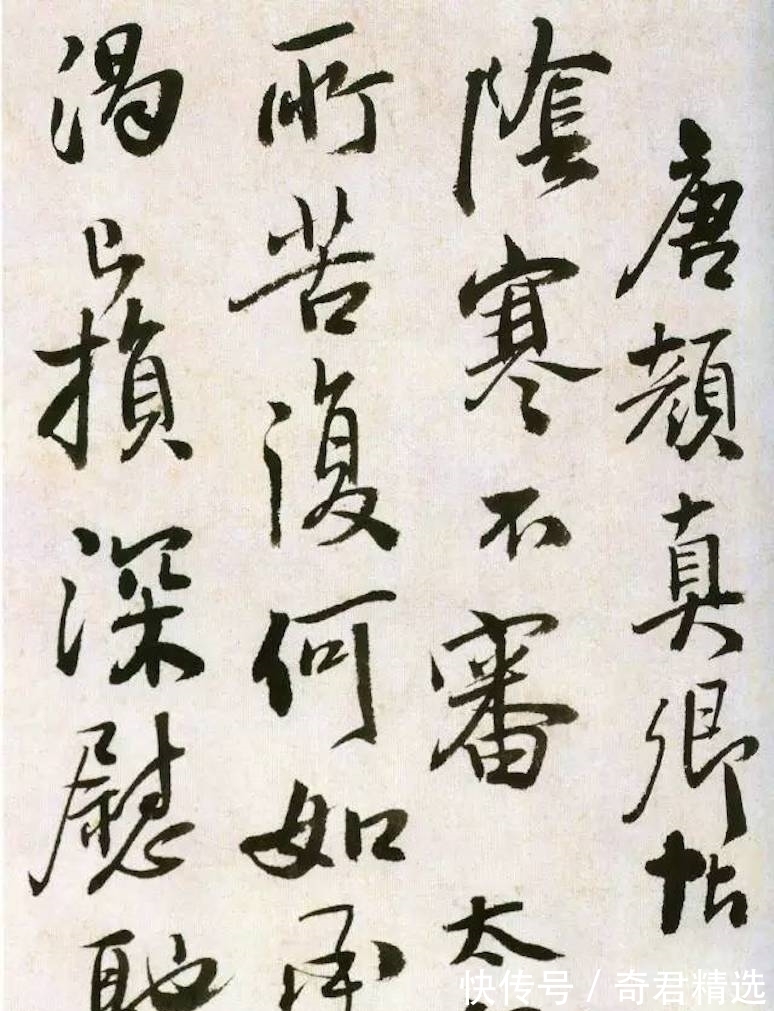 唐顔真卿帖
陰寒不審太
所苦復何如承
渴已損深慰馳
快传号/奇君精选